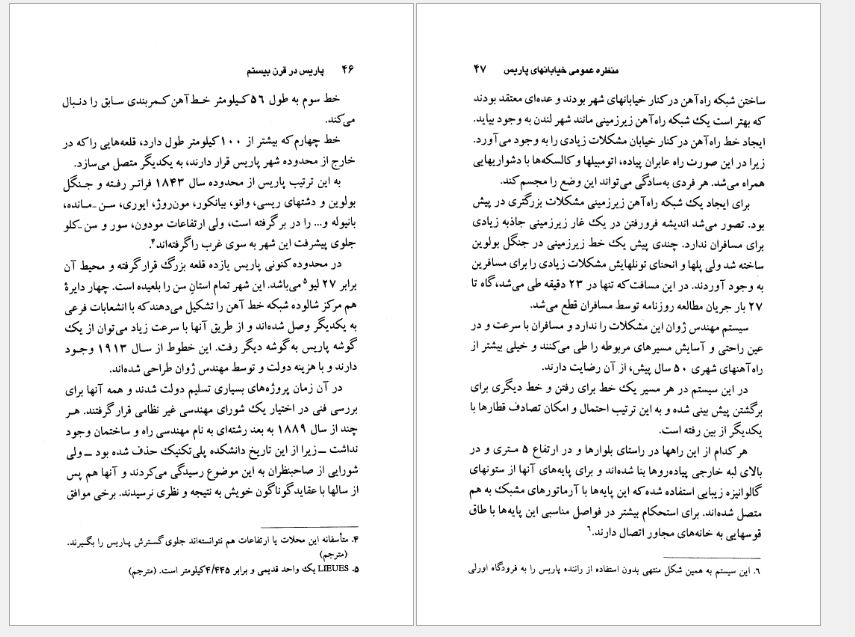 ۴۶ پاریس در قرن بیستم
خط سوم به طول ۵۶ کیلومتر خط آهن کمربندی سابق را دنبال
می‌کند.
خط چهارم که بیشتر از ۱۰۰ کیلومتر طول دارد، قلعه‌هایی را که در
خارج از محدوده شهر پاریس قرار دارند، به یکدیگر متصل می‌سازد.
به این ترتیب پاریس از محدوده سال ۱۸۴۳ فراتر رفته و جنگل
بولوین و دشتهای ریسی، وانو، بیانکور، مون‌روژ، ایوری، سن ـ مانده،
بانیوله و... را در بر گرفته است، ولی ارتفاعات مودون، سور و سن ـ کلو
جلوی پیشرفت این شهر به سوی غرب را گرفته‌اند.۴
در محدوده کنونی پاریس یازده قلعه بزرگ قرار گرفته و محیط آن
برابر ۲۷ لیو۵ می‌باشد. این شهر تمام استان سن را بلعیده است. چهار دایرهٔ
هم مرکز شالوده شبکه خط آهن را تشکیل می‌دهند که با انشعابات فرعی
به یکدیگر وصل شده‌اند و از طریق آنها با سرعت زیاد می‌توان از یک
گوشه پاریس به گوشه دیگر رفت. این خطوط از سال ۱۹۱۳ وجود
دارند و با هزینه دولت و توسط مهندس ژوان طراحی شده‌اند.
در آن زمان پروژه‌های بسیاری تسلیم دولت شدند و همه آنها برای
بررسی فنی در اختیار یک شورای مهندسی غیر نظامی قرار گرفتند. هر
چند از سال ۱۸۸۹ به بعد رشته‌ای به نام مهندسی راه و ساختمان وجود
نداشت ـ زیرا از این تاریخ دانشکده پلی‌تکنیک حذف شده بود ـ ولی
شورایی از صاحبنظران به این موضوع رسیدگی می‌کردند و آنها هم پس
از سالها با عقاید گوناگون خویش به نتیجه و نظری نرسیدند. برخی موافق
۴. متأسفانه این محلات یا ارتفاعات هم نتوانسته‌اند جلوی گسترش پاریس را بگیرند.
(مترجم)
۵. LIEUES یک واحد قدیمی و برابر ۴/۴۴۵ کیلومتر است. (مترجم)
منظره عمومی خیابانهای پاریس ۴۷
ساختن شبکه راه آهن در کنار خیابانهای شهر بودند و عده‌ای معتقد بودند
که بهتر است یک شبکه راه آهن زیرزمینی مانند شهر لندن به وجود بیاید.
ایجاد خط راه آهن در کنار خیابان مشکلات زیادی را به وجود می‌آورد.
زیرا در این صورت راه عابران پیاده، اتومبیلها و کالسکه‌ها با دشواریهایی
همراه می‌شد. هر فردی به‌سادگی می‌تواند این وضع را مجسم کند.
برای ایجاد یک شبکه راه آهن زیرزمینی مشکلات بزرگتری در پیش
بود. تصور می‌شد اندیشه فرورفتن در یک غار زیرزمینی جاذبه زیادی
برای مسافران ندارد. چندی پیش یک خط زیرزمینی در جنگل بولوین
ساخته شد ولی پلها و انحنای تونلهایش مشکلات زیادی را برای مسافرین
به وجود آوردند. در این مسافت که تنها در ۲۳ دقیقه طی می‌شد، گاه تا
۲۷ بار جریان مطالعه روزنامه توسط مسافران قطع می‌شد.
سیستم مهندس ژوان این مشکلات را ندارد و مسافران با سرعت و در
عین راحتی و آسایش مسیرهای مربوطه را طی می‌کنند و خیلی بیشتر از
راه آهنهای شهری ۵۰ سال پیش، از آن رضایت دارند.
در این سیستم در هر مسیر یک خط برای رفتن و خط دیگری برای
برگشتن پیش بینی شده و به این ترتیب احتمال و امکان تصادف قطارها با
یکدیگر از بین رفته است.
هر کدام از این راهها در راستای بلوارها و در ارتفاع ۵ متری و در
بالای لبه خارجی پیاده‌روها بنا شده‌اند و برای پایه‌های آنها از ستونهای
گالوانیزه زیبایی استفاده شده که این پایه‌ها با آرماتورهای مشبک به هم
متصل شده‌اند. برای استحکام بیشتر در فواصل مناسبی این پایه‌ها با طاق
قوسهایی به خانه‌های مجاور اتصال دارند.۶
۶. این سیستم به همین شکل منتهی بدون استفاده از راننده پاریس را به فرودگاه اورلی